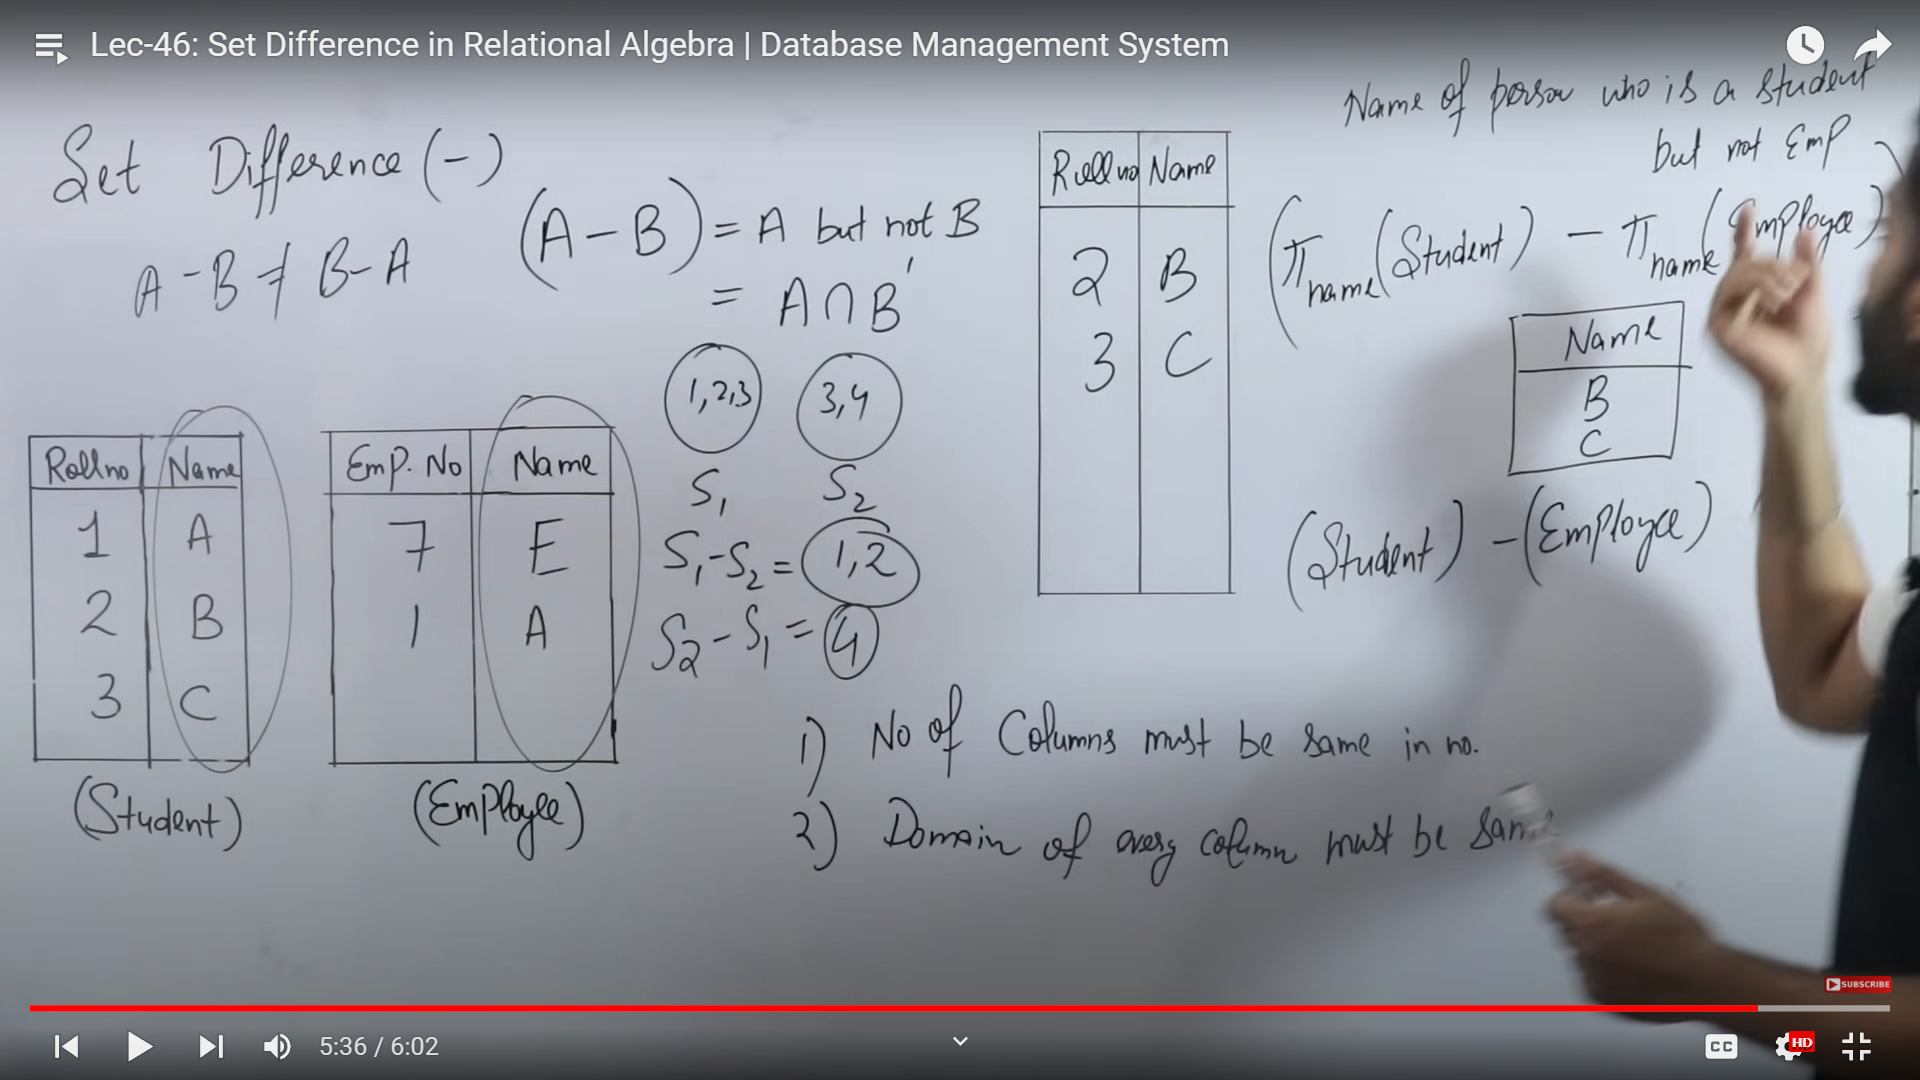 Lec-46: Set Difference in Relational Algebra | Database Management System
Set Difference (-)
A - B ≠ B - A
(A - B) = A but not B
= A ∩ B'
1,2,3
3,4
S₁
S₂
S₁-S₂ = 1,2
S₂ - S₁ = 4
Rollno Name
1 A
2 B
3 C
(Student)
Emp. No Name
7 E
1 A
(Employee)
Rollno Name
2 B
3 C
Name of person who is a student
but not Emp
(π name (Student) - π name (Employee)
Name
B
C
(Student) - (Employee)
1) No of Columns must be same in no.
2) Domain of every column must be same
SUBSCRIBE
5:36 / 6:02
CC
HD